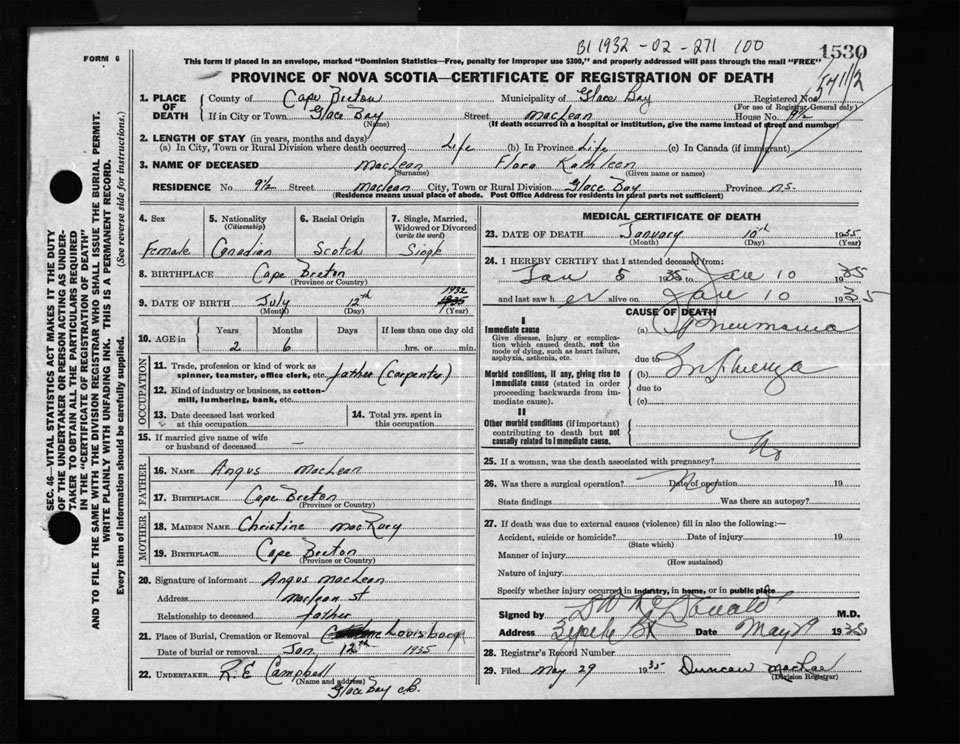 BI 1932 - 02 - 271 100
1530
FORM 6
This form if placed in an envelope, marked "Dominion Statistics—Free, penalty for improper use $300," and properly addressed will pass through the mail "FREE"
PROVINCE OF NOVA SCOTIA—CERTIFICATE OF REGISTRATION OF DEATH
1. PLACE OF DEATH County of Cape Breton Municipality of Glace Bay Registered No.
(For use of Registrar General only)
If in City or Town Glace Bay Street MacLean House No. 9½
(Name) (If death occurred in a hospital or institution, give the name instead of street and number)
2. LENGTH OF STAY (in years, months and days)
(a) In City, Town or Rural Division where death occurred Life (b) In Province Life (c) In Canada (if immigrant)
3. NAME OF DECEASED MacLean Flora Kathleen
(Surname) (Given name or names)
RESIDENCE No. 9½ Street MacLean City, Town or Rural Division Glace Bay Province N.S.
(Residence means usual place of abode. Post Office Address for residents in rural parts not sufficient)
4. Sex Female
5. Nationality (Citizenship) Canadian
6. Racial Origin Scotch
7. Single, Married, Widowed or Divorced (write the word) Single
8. BIRTHPLACE Cape Breton
(Province or Country)
9. DATE OF BIRTH July 12th 1932
(Month) (Day) (Year)
10. AGE in Years 2 Months 6 Days If less than one day old hrs. or min.
OCCUPATION
11. Trade, profession or kind of work as spinner, teamster, office clerk, etc. father (Carpenter)
12. Kind of industry or business, as cotton-mill, lumbering, bank, etc.
13. Date deceased last worked at this occupation
14. Total yrs. spent in this occupation
15. If married give name of wife or husband of deceased —
FATHER
16. NAME Angus MacLean
17. BIRTHPLACE Cape Breton
(Province or Country)
MOTHER
18. MAIDEN NAME Christine MacRury
19. BIRTHPLACE Cape Breton
(Province or Country)
20. Signature of informant Angus MacLean
Address MacLean St
Relationship to deceased father
21. Place of Burial, Cremation or Removal Louisburg
Date of burial or removal Jan. 12th 1935
22. UNDERTAKER R. E. Campbell
(Name and address)
Glace Bay CB.
MEDICAL CERTIFICATE OF DEATH
23. DATE OF DEATH January 10th 1935
(Month) (Day) (Year)
24. I HEREBY CERTIFY that I attended deceased from:
Jan 5 1935 to Jan 10 1935
and last saw her alive on Jan 10 1935
CAUSE OF DEATH
I
Immediate cause
Give disease, injury or complication which caused death, not the mode of dying, such as heart failure, asphyxia, asthenia, etc.
(a) Pneumonia
due to
Morbid conditions, if any, giving rise to immediate cause (stated in order proceeding backwards from immediate cause).
(b) Influenza
due to
(c)
II
Other morbid conditions (if important) contributing to death but not causally related to immediate cause.
25. If a woman, was the death associated with pregnancy? No
26. Was there a surgical operation? No Date of operation 19
State findings Was there an autopsy?
27. If death was due to external causes (violence) fill in also the following:—
Accident, suicide or homicide? Date of injury 19
(State which)
Manner of injury
(How sustained)
Nature of injury
Specify whether injury occurred in industry, in home, or in public place
Signed by M.D.
Address Date May 29 1935
28. Registrar's Record Number
29. Filed May 29 1935 Duncan MacRae
(Division Registrar)
SEC. 46—VITAL STATISTICS ACT MAKES IT THE DUTY
OF THE UNDERTAKER OR PERSON ACTING AS UNDER-
TAKER TO OBTAIN ALL THE PARTICULARS REQUIRED
IN THE "CERTIFICATE OF REGISTRATION OF DEATH"
AND TO FILE THE SAME WITH THE DIVISION REGISTRAR WHO SHALL ISSUE THE BURIAL PERMIT.
WRITE PLAINLY WITH UNFADING INK. THIS IS A PERMANENT RECORD.
Every item of information should be carefully supplied. (See reverse side for instructions.)